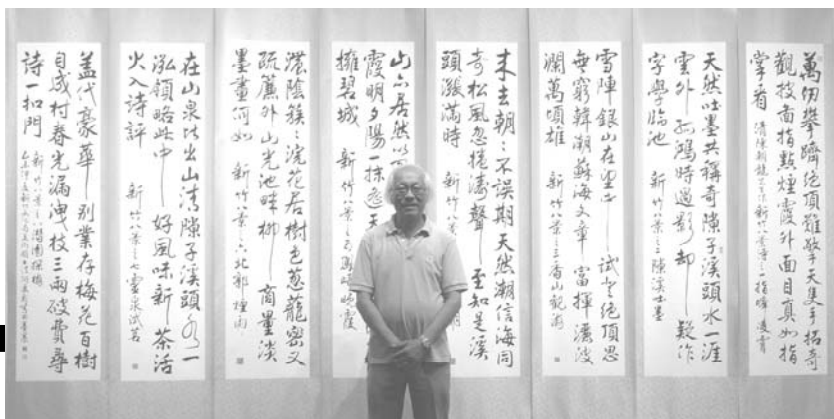 萬仞攀躋絕頂難敬天隻手拓奇
觀投面指點煙霞外面目真如指
掌看 清陳朝龍 新竹八景之一指峰凌霄
天然吐墨共稱奇隙子溪頭水一涯
雲外孤鴻時過影却疑作
字學臨池 新竹八景之二隙溪吐墨
雪陣銀山在望中試登絕頂思
無窮韓潮蘇海文章富揮灑波
瀾萬頃雄 新竹八景之三香山觀海
來去朝朝不誤期天然潮信海同
奇松風忽捲濤聲至知是溪
頭漲滿時 新竹八景
山亦居然以
霞明夕陽一抹
擁碧城 新竹八景之五 晚霞
濃陰簇簇浣花居樹色蔥蘢密又
疏簾外山光池畔柳商量淡
墨畫何如 新竹八景之六北郭煙雨
在山泉比出山清隙子溪頭又一
泓領略此中好風味新茶活
火入詩評 新竹八景之七靈泉試茗
蓋代豪華別業存梅花百樹
自成村春光漏洩枝三兩破費尋
詩一扣門 新竹八景之八潛園探梅